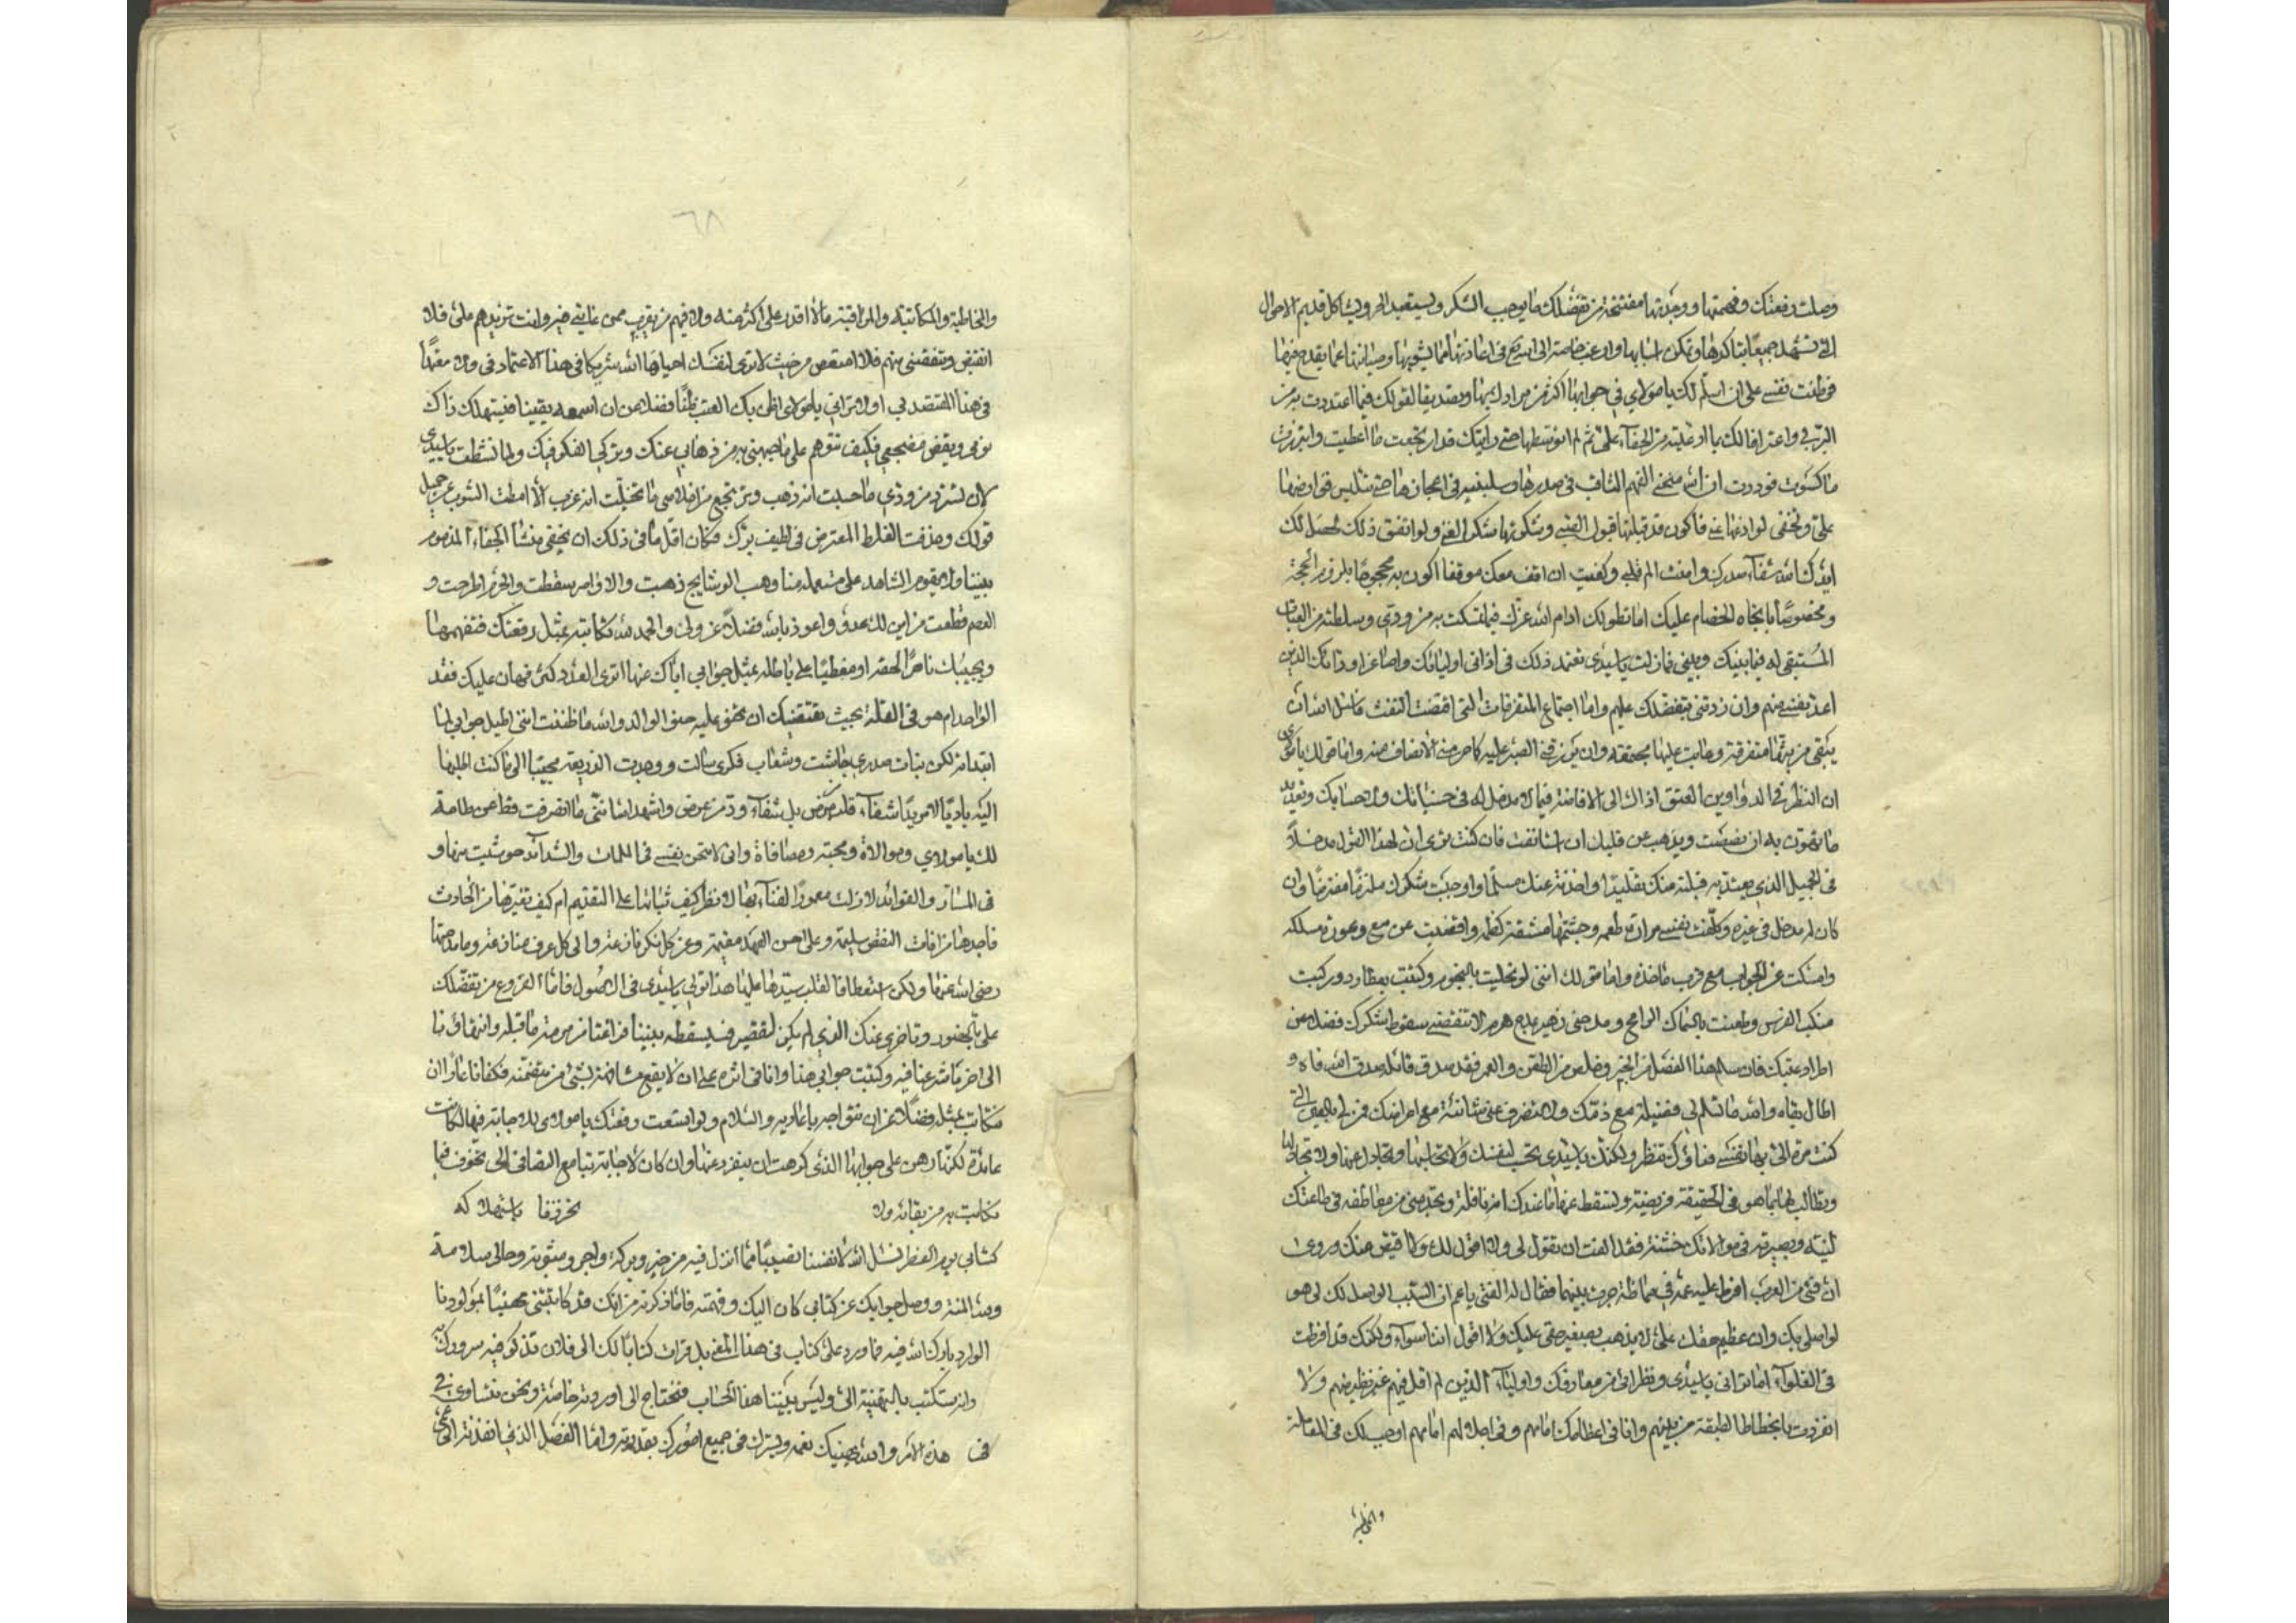 وصلت رقعتك وفهمتها ووجدتها مفتتحة من تفضلك ما يوجب الشكر ويستعيد الحر ويشاكل قديم الاحوال
التي نشهد جميعًا بتاكدها وتمكن اسبابها وارغب خاصة الى الله في اعاذتها مما يشوبها وصيانتها عما يقدح فيها
فوطنت نفسي على ان اسلم لك يا مولاي في جوابها اكثر من مرادك بها وتصديقا لقولك فيما اعتددت به من
البر في واعترافا لك بما ادعيته من الجفاء علي ثم لم اتوسطها حتى رايتك قد ارتجعت ما اعطيت وابتززت
ما كسوت فوددت ان الله منحني الفهم الثاقب في صدرها وسلبنيه في اعجازها حتى تلتبس قوارضها
علي وتخفى لواذعها عني فاكون قد قبلتها قبول الغبي وشكرتها شكر الغر ولو اتفق ذلك لحصل لك
ايدك الله شفاء صدرك وامنت الم قلبي وكفيت ان اقف معك موقفا اكون به محجوجًا بلزوم الحجة
ومخصومًا باتجاه الخصام عليك اما تطولك ادام الله عزك فيما تمسكت به من ودي وسلطته من العتاب
المستبقى له فيما بينك وبيني فما زلت يا سيدي تعتمد ذلك في اذاني اوليائك واصاغر اودائك الذين
اعد نفسي منهم وان زدتني بتفضلك عليهم واما اجتماع المتفرقات التي اقتضت النفث فاسال الله ان
يبقي من بثها متفرقة وعابت عليها مجتمعة وان يرزقني الصبر عليه كما حرمني الانصاف منه واما قولك يا مولاي
ان النظر في الدواوين العتق اداك الى الافاضة فيما لا مدخل له في حسباناتك ولا حسابك وتعديد
ما تهون به ان نصصت ويذهب عن قلبك ان استانفت فان كنت ترى ان لهذا القول مدخلاً
في الجميل الذي يعتد به قبلته منك تقليدًا واخذته عنك مسلمًا واوجبت شكرك ملتزمًا مفترضًا وان
كان له مدخل في غيره وكلفت نفسي مرارة طعمه وجشمتها مشقة كظمه واغضيت عن سمع وعورة مسلكه
وامسكت عن الجواب مع قرب ماخذه واما قولك انني لو تحليت بالنجوم وكتبت بعطارد وركبت
منكب الفرس وطعنت بالسماك الرامح ومدحني زهير بمدح هرم لما تنقضت سقوط شكرك فضلا عن
اطراد عتبك فان سلم هذا الفصل من الخبر وخلص من الطعن والغمز فقد صدق قائله صدق الله فاه و
اطال بقاه والله ما تسلم لي فضيلة مع ذمك ولا تنصرف عني شائنة مع اعراضك فمن لي بالعين التي
كنت مرة الي بها نفسك فداؤك تنظر ولكنك يا سيدي تحب لنفسك ولا تحاسبها وتجادل عنها ولا تجادلها
وتطالب لها بما هو في الحقيقة فريضة وتسقط عنها ما عندك انه نافلة وتجد مني من معاطفه في طاعتك
لينة وبصيرته في موالاتك خشنة فقد الفت ان تقول لي ولا اقول لك ولا اقيض منك وروي
ان فتى من العرب افرط عليه عمه في مماظة جرت بينهما فقال له الفتى يا عم ان السبب الواصل لك لي هو
الواصلي بك وان عظيم حقك علي لا يذهب بصغير حقي عليك ولا اقول اننا سواء ولكنك قد افرطت
في الغلواء اما تراني يا سيدي ونظرائي من معارفك واوليائك الذين لم اقل فيهم غير نظير منهم ولا
انفردت بانحطاط الطبقة من بينهم وانا في اعظامك امامهم وفي اجلالهم امامهم اوجب لك في المعاملة
والمخاطبة
٦٨
والمخاطبة والمكاتبة والمراقبة ما لا اقدر على اكثر منه ولا فيهم من يقرب ممن غايتي فيه وانت تزيدهم علي فلا
انقبض وتنقصني منهم فلا امتعض من حيث لا ترى لنفسك احياها الله شريكا في هذا الاعتماد في ولا مقتديًا
في هذا المعتقد بي اولا تراني يا مولاي اظن بك العتب ظنًا فضلا عن ان اسمعه يقينا فيستهلك ذاك
نومي ويقض مضجعي فكيف تتوهم علي ما جبهتني به من ذهابي عنك وتركي الفكر فيك ولما نشطت يا سيدي
لان تسترد من ودي ما حسبت انه ذهب وترتجع من اخلاصي ما تخيلت انه عزب الا امطت الشوب عن جميل
قولك وحذفت الغلط المعترض في لطيف برك فكان اقل ما في ذلك ان يخفى منشأ الجفاء المذموم
بيننا ولا يقوم الشاهد على مستعمله منا وهب الوشايج ذهبت والاواصر سقطت والحرم اطرحت و
العصم قطعت من اين لك عدو واعوذ بالله فضلاً عن ولي والحمد لله تكاتبه بمثل رقعتك فتفهمها
ويجيبك ناصرًا لحقه او مغطيًا على باطله بمثل جوابي اياك عنها اترى العدد كثر فهان عليك فقد
الواحد ام هو في القلة بحيث يقتضيك ان تحنو عليه حنو الوالد والله ما ظننت انني اطيل جوابي لما
ابتداته لكن بنات صدري جاشت وشعاب فكري سالت ووجدت الذريعة مجيبا الى ما كنت اطلبها
اليه باديًا لا مريدًا شفاء قلب مرض بل شفاء ود من عرض واشهد الله انني ما انصرفت قط عن طاعة
لك يا مولاي وموالاة ومحبة ومصافاة واني لامتحن نفسي في الملمات والشدائد حوشيت منها و
في المسار والفوائد لا زلت معمور الفناء بها لانظر كيف ثباتها على القديم ام كيف تغيرها من الحادث
فاجدها من افات النقض سليمة وعلى احسن العهد مقيمة وعن كل نكر نازعة والى كل عرف منازعة وما مدحتها
رضى الله عنها ولكن استعطافا لقلب سيدها عليها هذا قولي يا سيدي في الاصول فاما الفروع من تفضلك
علي بالحضور وتاخري عنك الذي لم يكن لتقصير فليسقطه بيننا
الى اخر ما شرعنا فيه وكتبت جوابي هذا وانا في اثره على ان لا يقع مشافهة بشيء من متضمنه فكفانا عارًا ان
نتكاتب بمثله فضلا عن ان نتواجه باعادته والسلام ولو اتسعت رقعتك يا مولاي للاجابة فيها لكانت
عائدة لكنها رهن على جوابها الذي كرهت ان ينفرد عنها وان كان لاجابة تنبا مع التصافي الى تخوف فيما
تكاتبت به من بقائه ولا تحرزفنا باستهلاكه
كتابي يوم الفطر نسال الله لانفسنا نصيبًا مما انزل فيه من خير وبركة واجر ومثوبة وحالي سلامة
ولله المنة ووصل جوابك عن كتابي كان اليك وفهمته فاما ذكرته من انك قد كاتبتني مهنيًا بمولودنا
الوارد بارك الله فيه فما ورد علي كتاب في هذا المعنى بل قرات كتابًا لك الى فلان تذكر فيه سرورك به
وانه ستكتب بالتهنية الي وليس بيننا هذا الحساب فنحتاج الى اوردته خاصة ونحن نتساوى في
هذه الامر والله يهنيك نعمه ويسرك في جميع امورك بقدرته واما الفصل الذي انفذته الى عمي